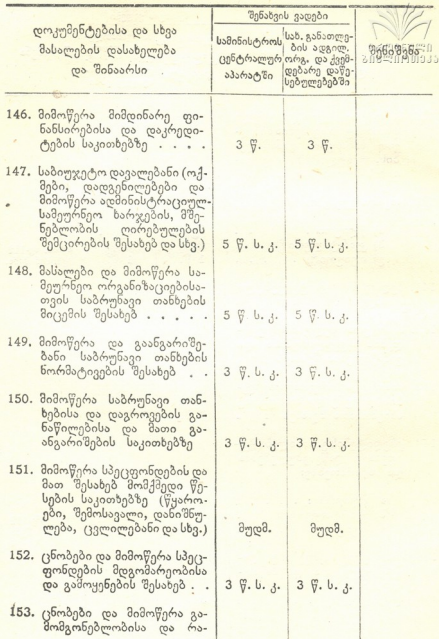 დოკუმენტებისა და სხვა
მასალების დასახელება
და შინაარსი
შენახვის ვადები
სამინისტროს
ცენტრალურ
აპარატში
სახ. განათლე-
ბის ადგილ.
ორგ. და ქვემ-
დებარე დაწე-
სებულებებში
შენიშვნა
146. მიმოწერა მიმდინარე ფი-
ნანსირებისა და დაკრედი-
ტების საკითხებზე . . . . 3 წ. 3 წ.
147. საბიუჯეტო დავალებანი (ოქ-
მები, დადგენილებები და
მიმოწერა ადმინისტრაციულ-
სამეურნეო ხარჯების, მშე-
ნებლობის ღირებულების
შემცირების შესახებ და სხვ.) 5 წ. ს. კ. 5 წ. ს. კ.
148. მასალები და მიმოწერა სა-
მეურნეო ორგანიზაციებისა-
თვის საბრუნავი თანხების
მიცემის შესახებ . . . . . 5 წ. ს. კ. 5 წ. ს. კ.
149. მიმოწერა და გაანგარიშე-
ბანი საბრუნავი თანხების
ნორმატივების შესახებ . . 3 წ. ს. კ. 3 წ. ს. კ.
150. მიმოწერა საბრუნავი თან-
ხებისა და დაგროვების გა-
ნაწილებისა და მათი გა-
ანგარიშების საკითხებზე 3 წ. ს. კ. 3 წ. ს. კ.
151. მიმოწერა სპეცფონდების და
მათ შესახებ მომქმედი წე-
სების საკითხებზე (წყარო-
ები, შემოსავალი, დანიშნუ-
ლება, ცვლილებანი და სხვ.) მუდმ. მუდმ.
152. ცნობები და მიმოწერა სპეც-
ფონდების მდგომარეობისა
და გამოყენების შესახებ . . 3 წ. ს. კ. 3 წ. ს. კ.
153. ცნობები და მიმოწერა გა-
მომგონებლობისა და რა-